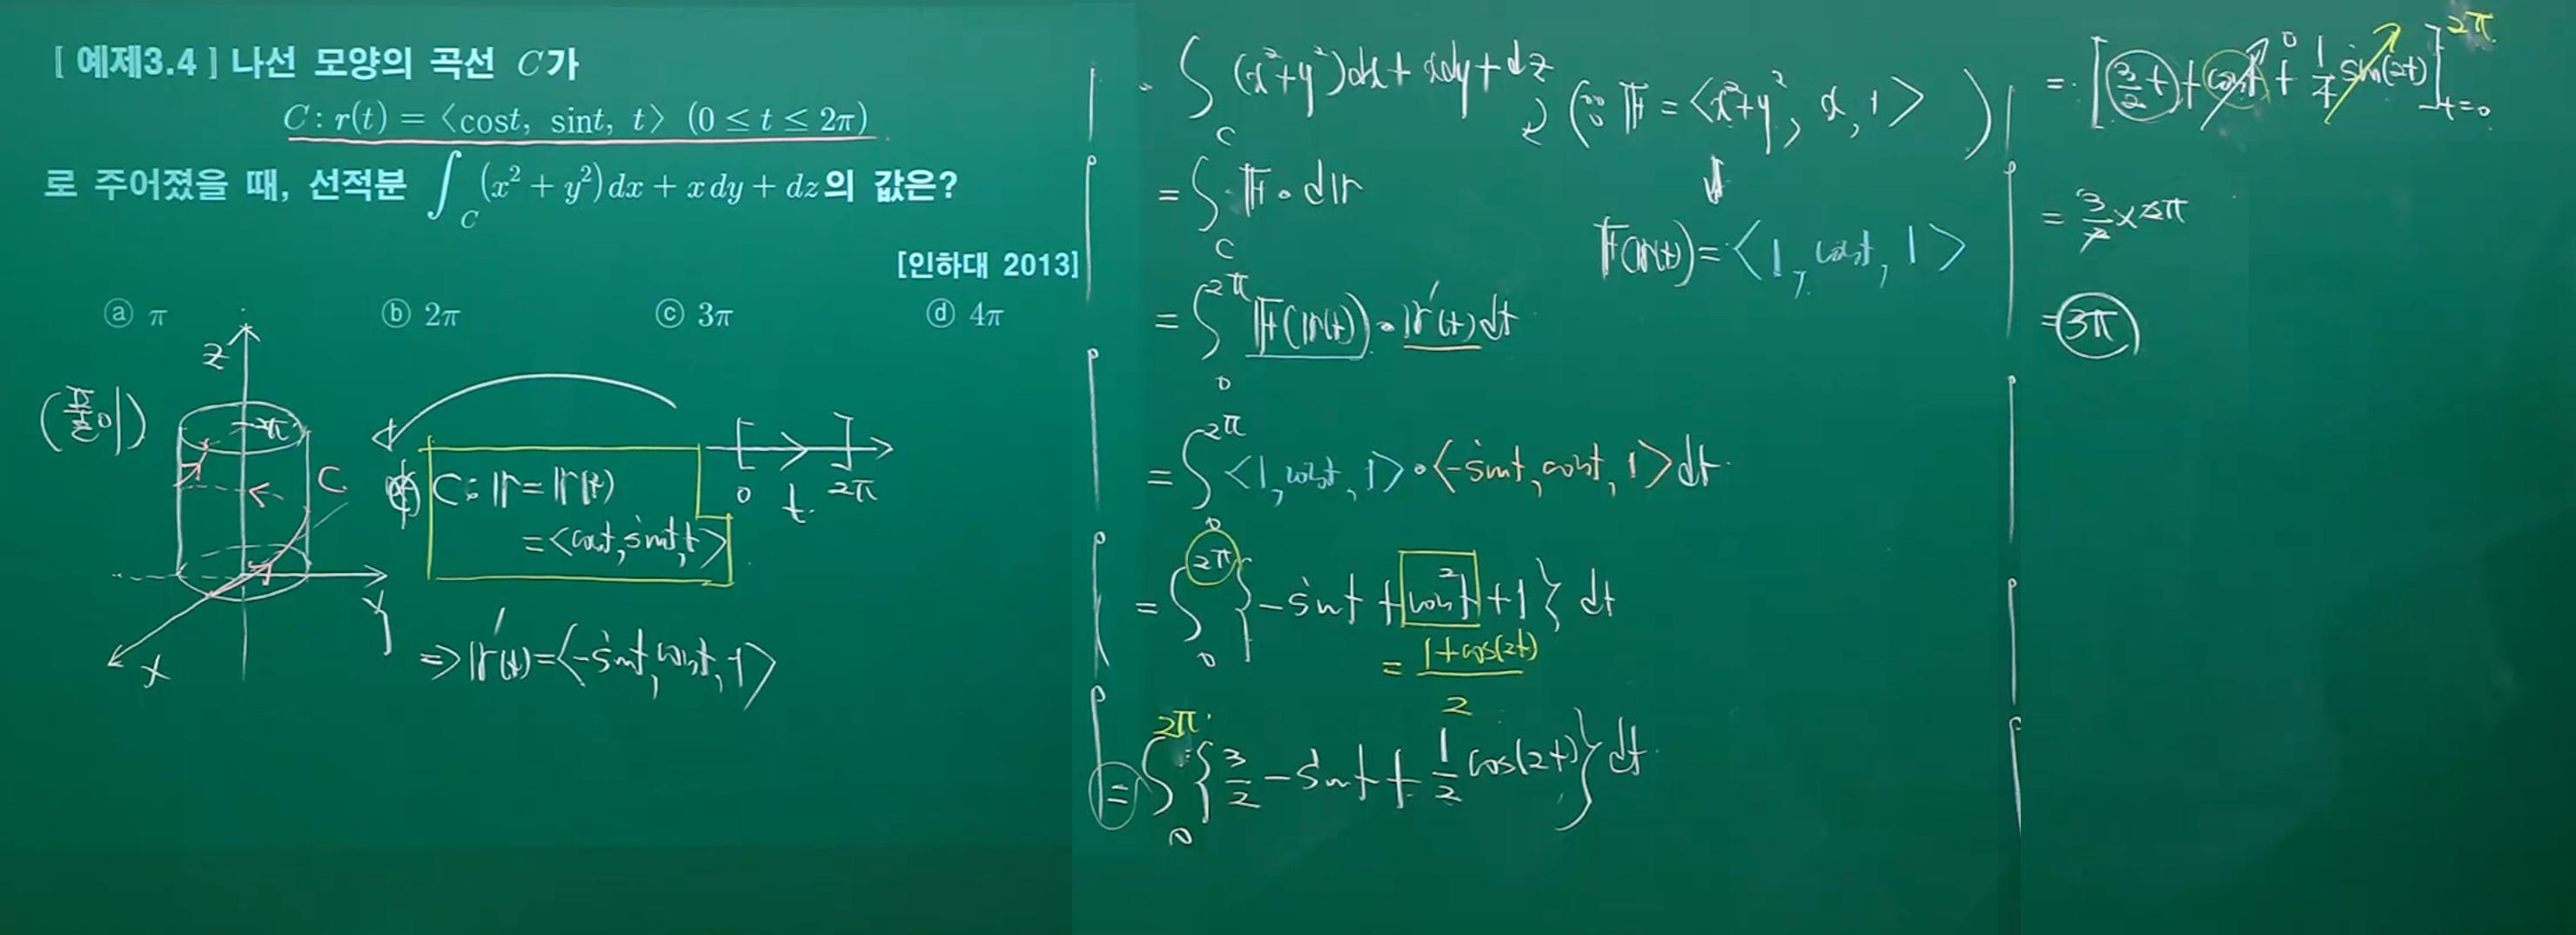 [ 예제3.4 ] 나선 모양의 곡선 C가
C : r(t) = ⟨cost, sint, t⟩ (0 ≤ t ≤ 2π)
로 주어졌을 때, 선적분 ∫_C (x² + y²) dx + x dy + dz의 값은?
[인하대 2013]
ⓐ π ⓑ 2π ⓒ 3π ⓓ 4π
(풀이)
Z
2π
C
y
x
0 t 2π
C : r = r(t)
= <cost, sint, t>
⇒ r'(t) = <-sint, cost, 1>
∫_C (x²+y²)dx + xdy + dz
(∵ F = <x²+y², x, 1> )
= ∫_C F • dr
F(r(t)) = <1, cost, 1>
= ∫_0^2π F(r(t)) • r'(t) dt
= ∫_0^2π <1, cost, 1> • <-sint, cost, 1> dt
= ∫_0^2π { -sint + cos²t + 1 } dt
= (1+cos(2t))/2
= ∫_0^2π { 3/2 - sint + 1/2 cos(2t) } dt
= [ 3/2 t + cost + 1/4 sin(2t) ]_t=0^2π
0
= 3/2 × 2π
= 3π